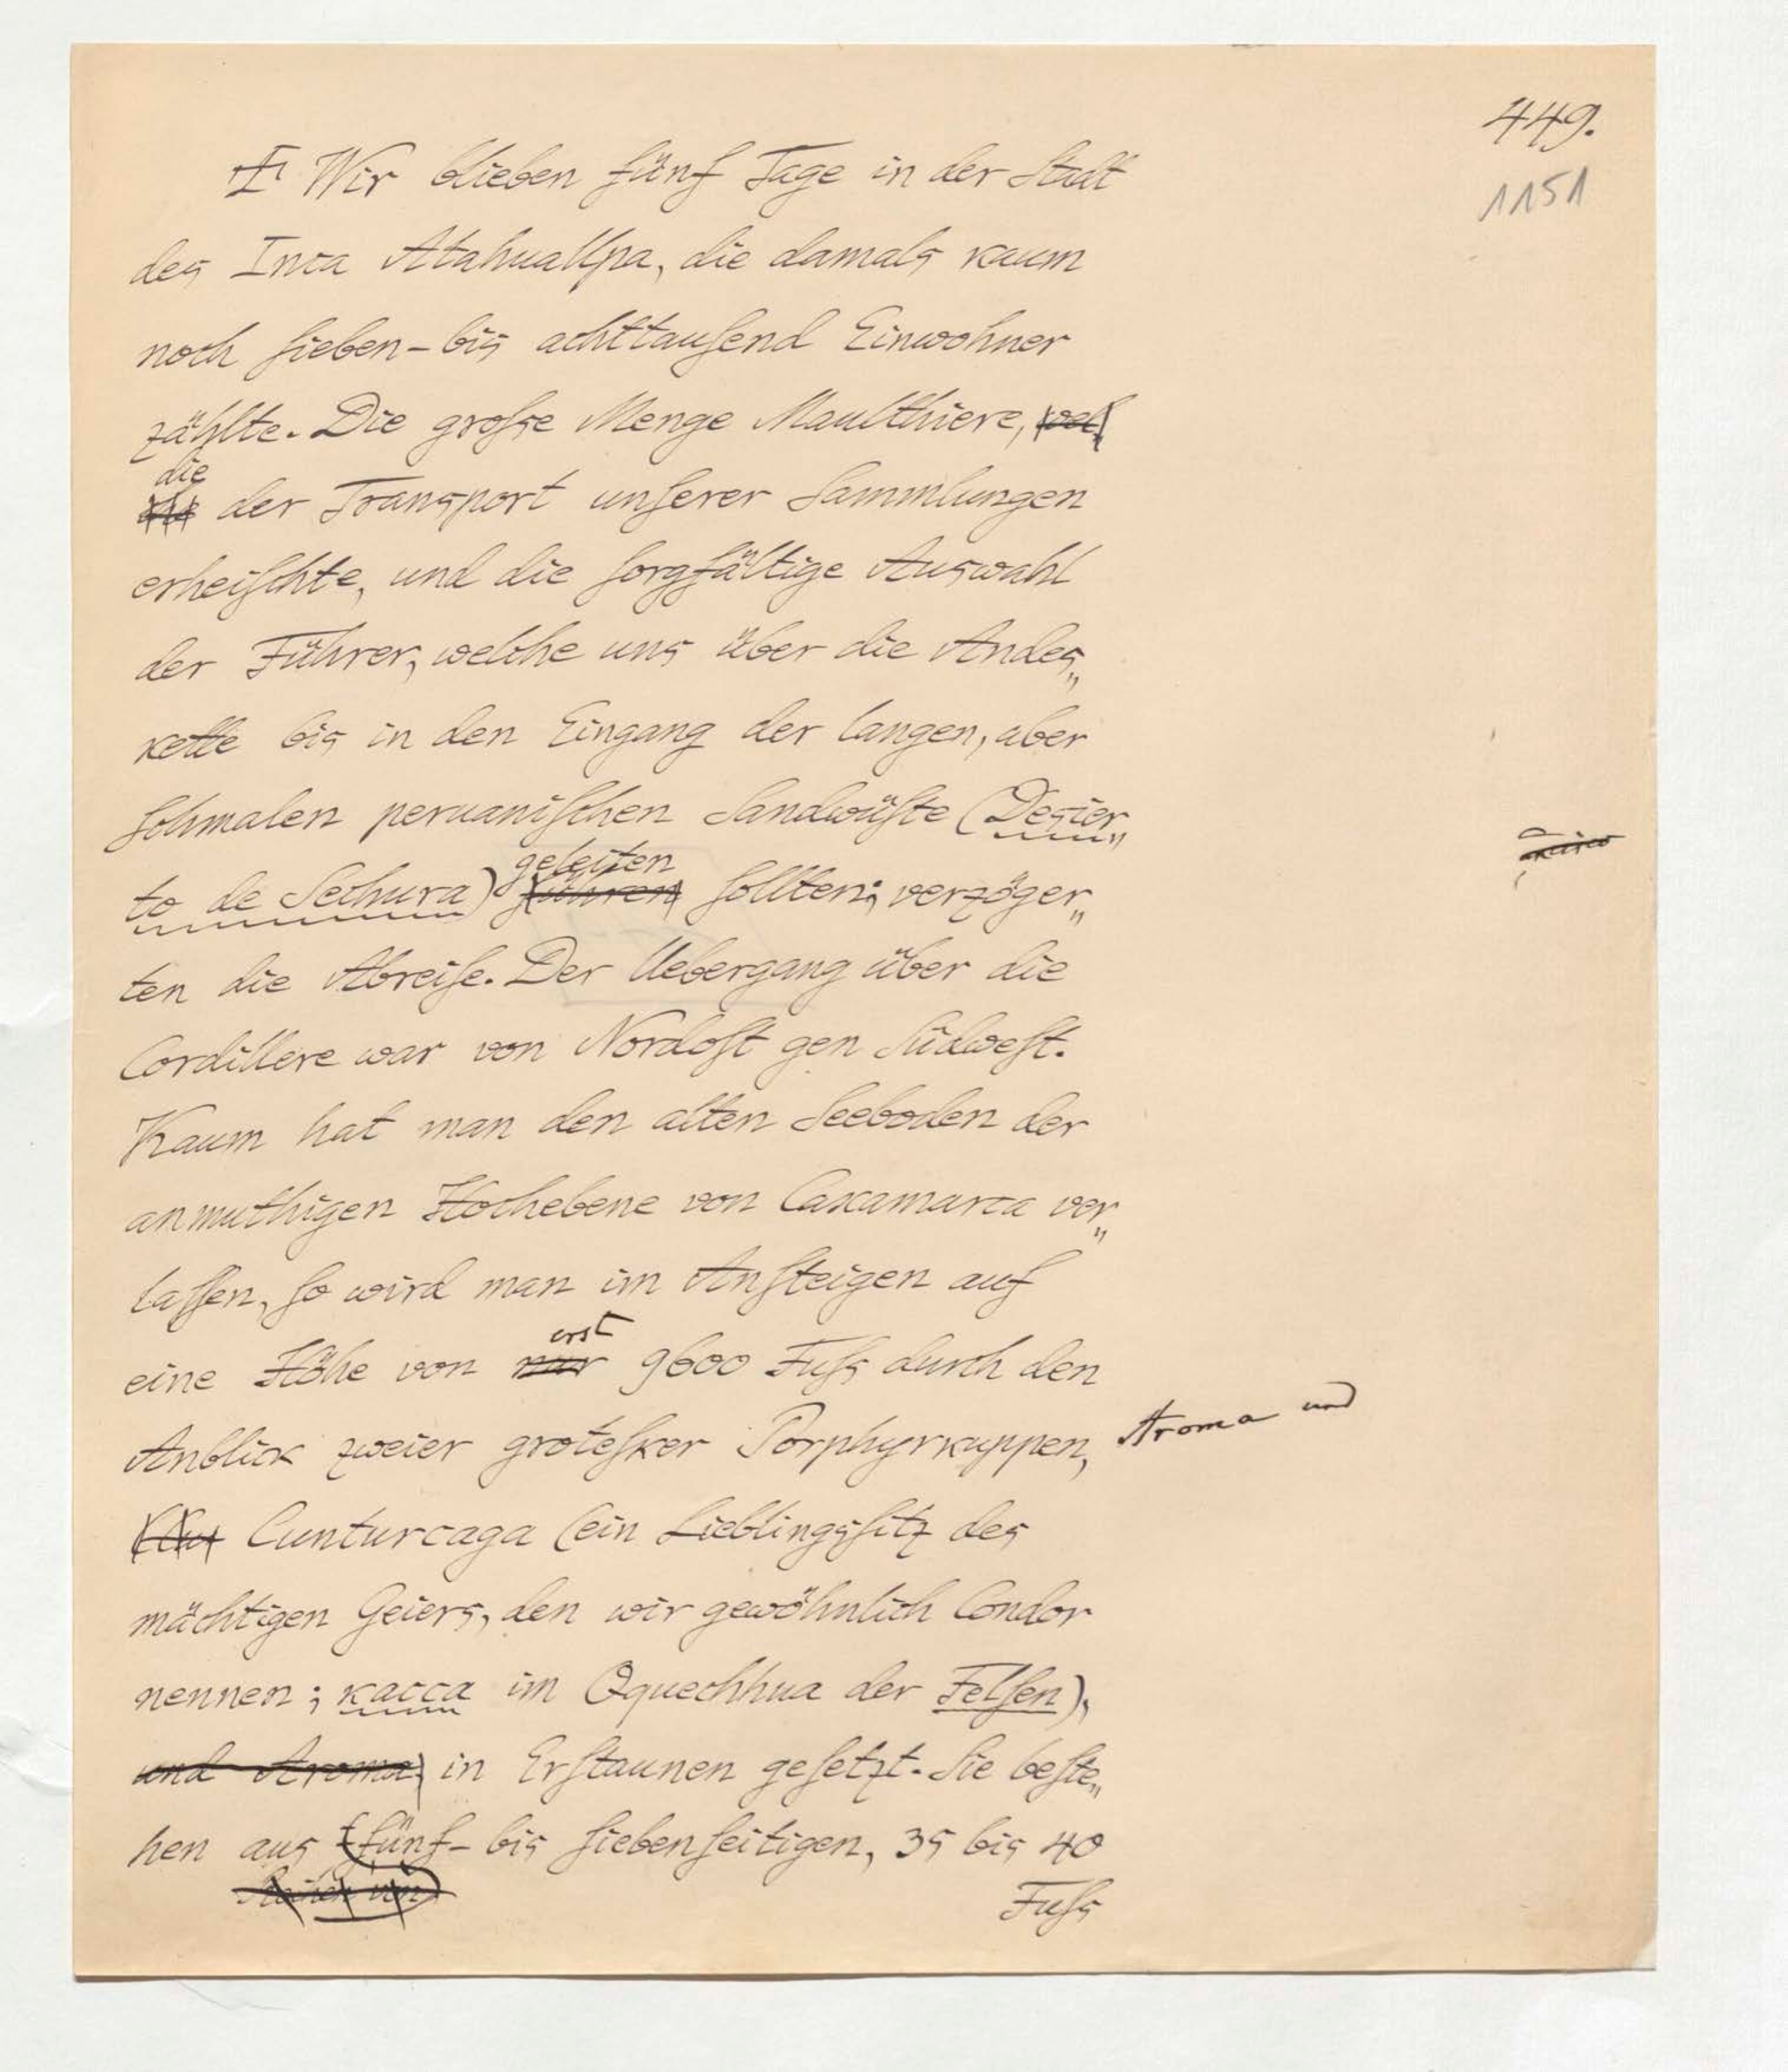 449.
1151
Wir blieben fünf Tage in der Stadt
des Inca Atahuallpa, die damals kaum
noch ſieben-bis achttauſend Einwohner
zählte. Die große Menge Maulthiere, wel
die
der Transport unſerer Sammlungen
erheiſchte, und die ſorgfältige Auswahl
der Führer, welche uns über die Andes„
kette bis in den Eingang der langen, aber
ſchmalen peruaniſchen Sandwüſte (Desier„
geleiten
to de Sechura) führen ſollten; verzöger„
ten die Abreiſe. Der Uebergang über die
Cordillere war von Nordoſt gen Südweſt.
Kaum hat man den alten Seeboden der
anmuthigen Hochebene von Caxamarca ver„
laſſen, ſo wird man im Anſteigen auf
erst
eine Höhe von nur 9600 Fuſs durch den
Anblick zweier groteſker Porphyrkuppen, Aroma und
Cunturcaga (ein Lieblingsſitz des
mächtigen Geiers, den wir gewöhnlich Condor
nennen; kacca im Qquechhua der Felſen),
und Aroma, in Erſtaunen geſetzt. Sie beſte„
hen aus fünf- bis ſiebenſeitigen, 35 bis 40
Fuſs